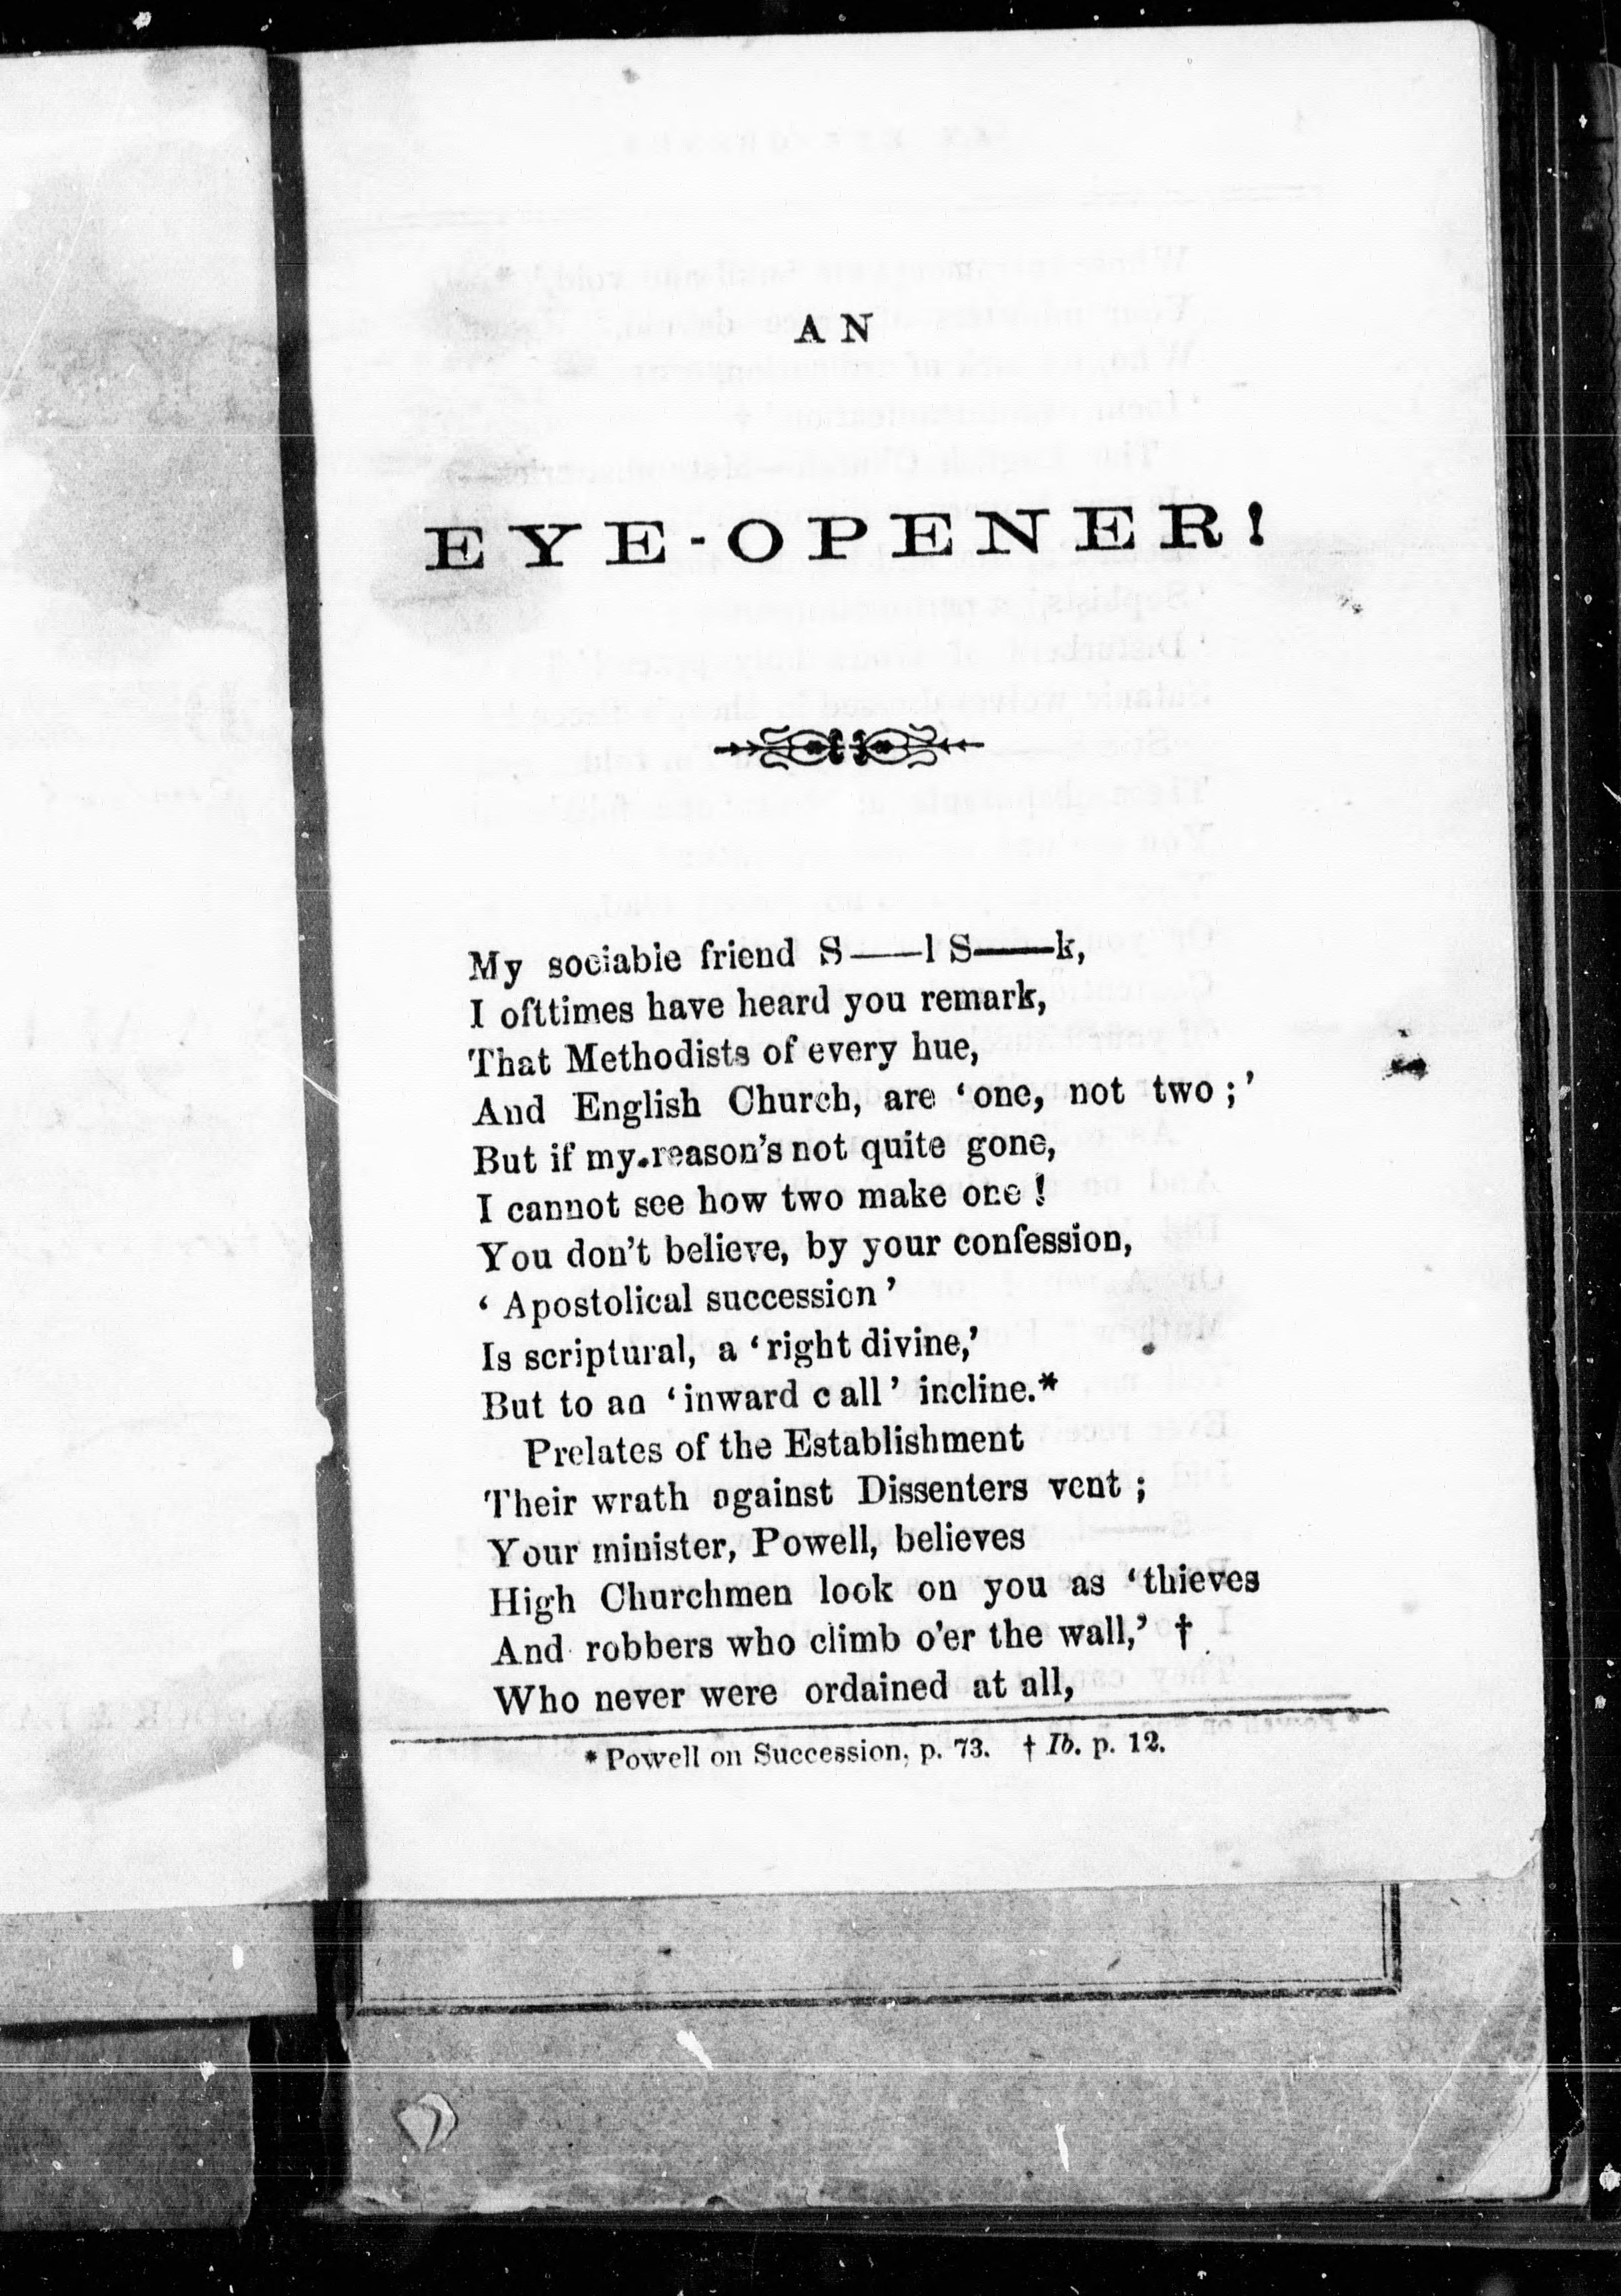 AN
EYE-OPENER!
My sociable friend S——l S——k,
I ofttimes have heard you remark,
That Methodists of every hue,
And English Church, are ‘one, not two;’
But if my reason’s not quite gone,
I cannot see how two make one!
You don’t believe, by your confession,
‘Apostolical succession’
Is scriptural, a ‘right divine,’
But to an ‘inward call’ incline.*
Prelates of the Establishment
Their wrath against Dissenters vent;
Your minister, Powell, believes
High Churchmen look on you as ‘thieves
And robbers who climb o’er the wall,’ †
Who never were ordained at all,
* Powell on Succession, p. 73. † Ib. p. 12.